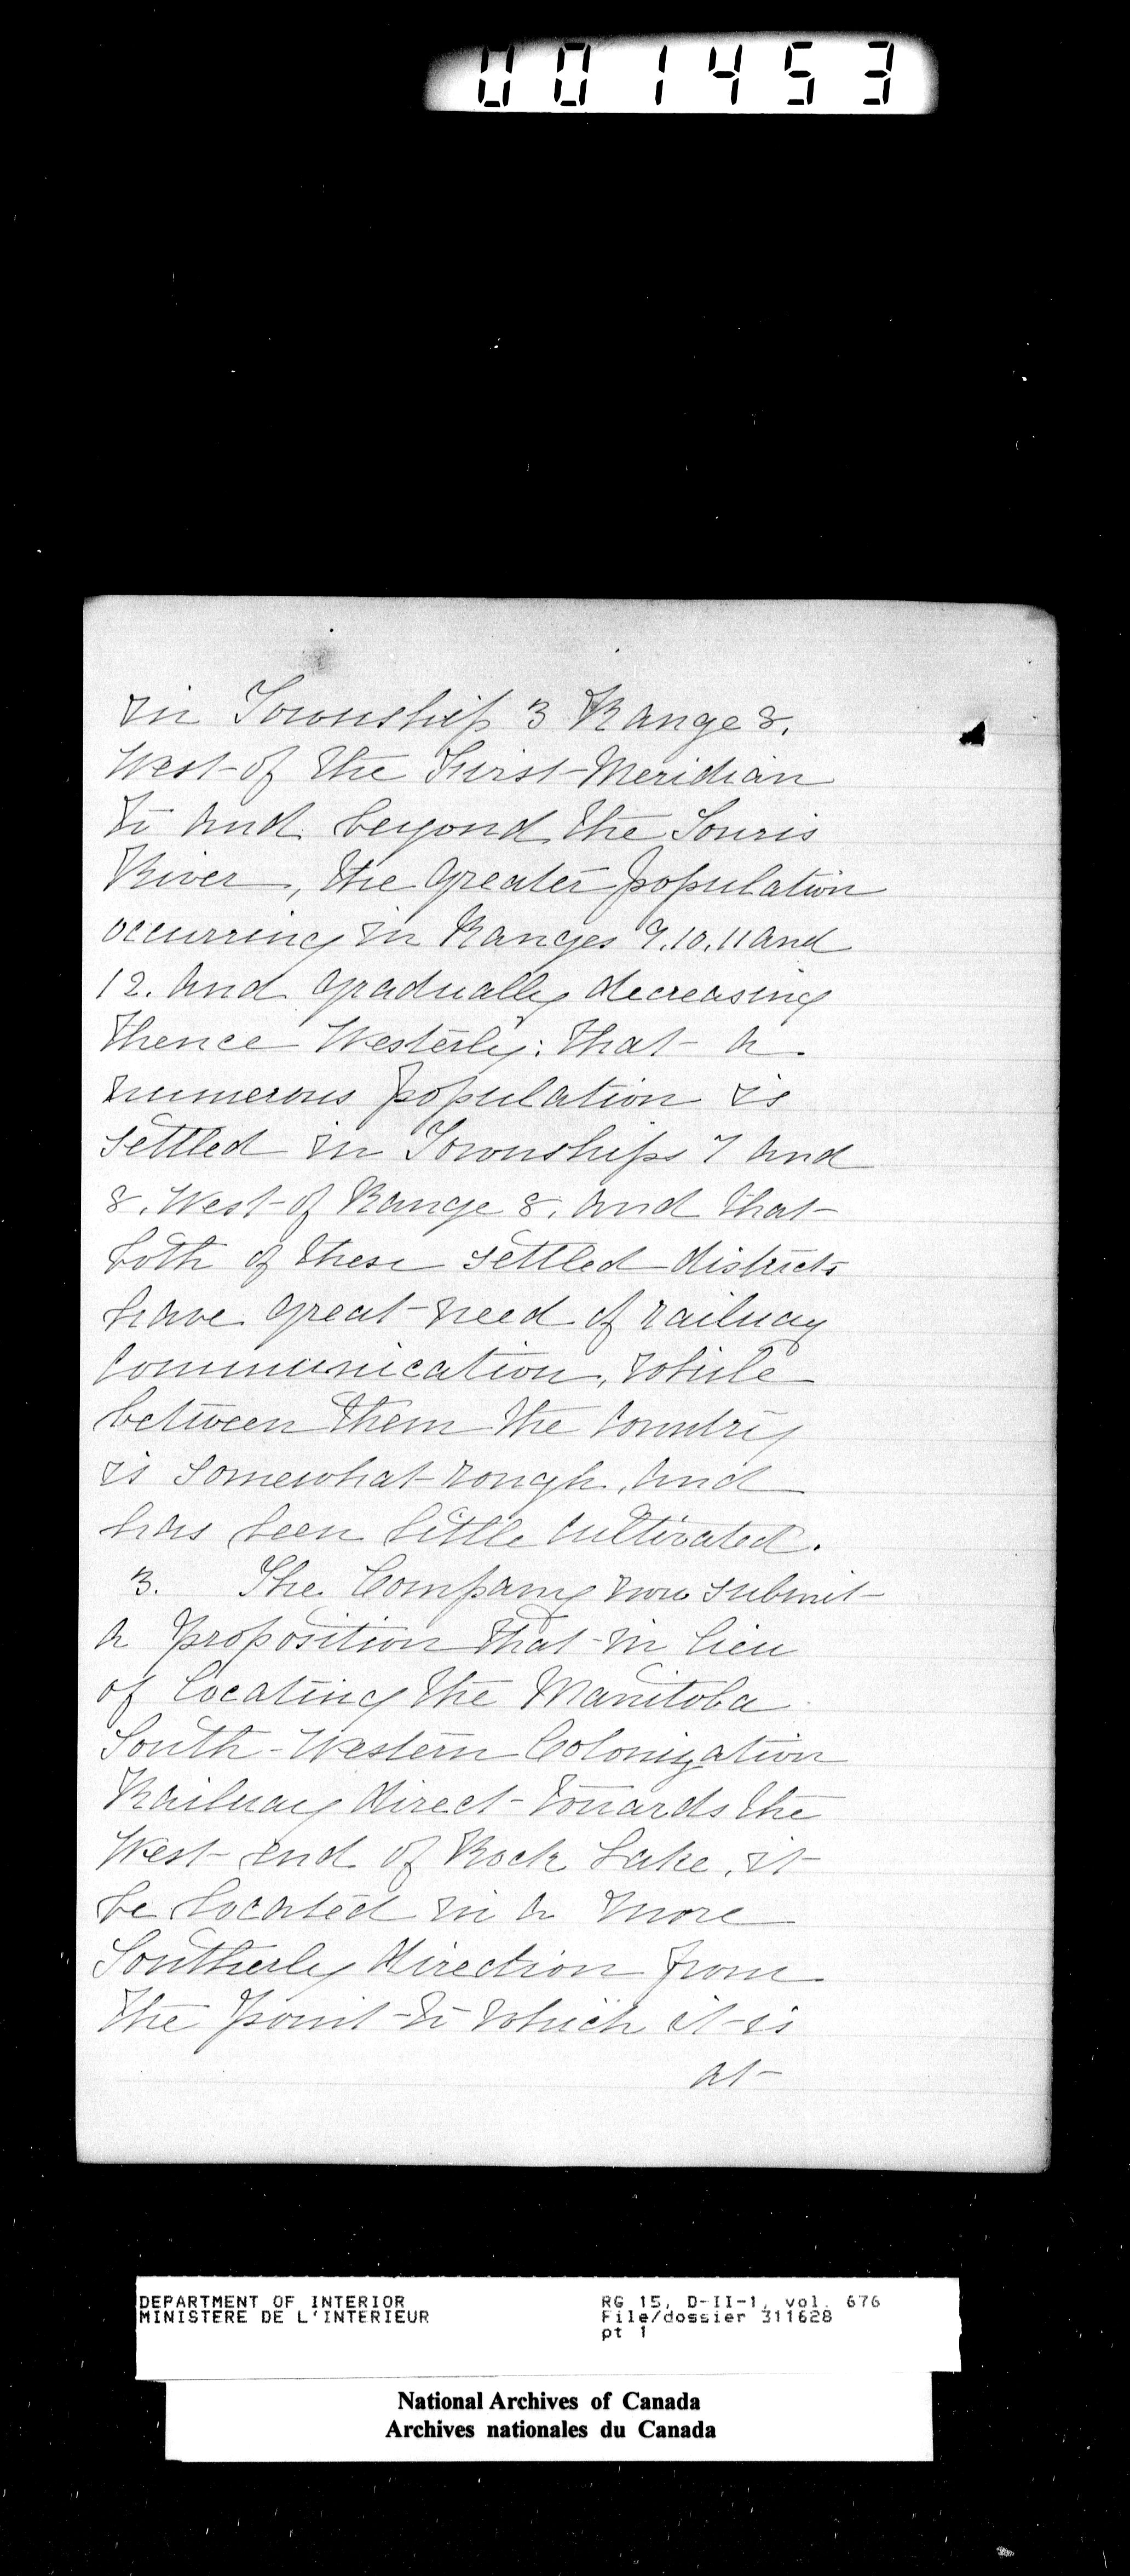 001453
in Township 3 Range 8.
West of the First Meridian
to and beyond the Souris
River, the greater population
occurring in Ranges 9.10.11 and
12. and gradually decreasing
thence Westerly: that a
numerous population is
settled in Townships 7 and
8. West of Range 8. and that
both of these settled districts
have great need of railway
communication, while
between them the country
is somewhat rough, and
has been little cultivated.
3. The Company now submit
a proposition that in lieu
of locating the Manitoba
South-Western Colonization
Railway direct towards the
West end of Rock Lake, it
be located in a more
Southerly direction from
the point to which it is
at
DEPARTMENT OF INTERIOR
MINISTERE DE L'INTERIEUR
RG 15, D-II-1, vol. 676
File/dossier 311628
pt 1
National Archives of Canada
Archives nationales du Canada